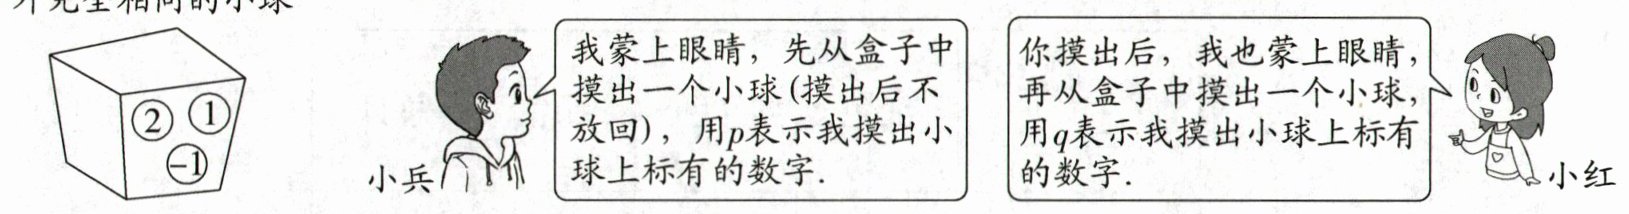 外完全相同的小球
2
1
-1
我蒙上眼睛，先从盒子中
摸出一个小球(摸出后不
放回)，用p表示我摸出小
球上标有的数字.
小兵
你摸出后，我也蒙上眼睛，
再从盒子中摸出一个小球，
用q表示我摸出小球上标有
的数字.
小红